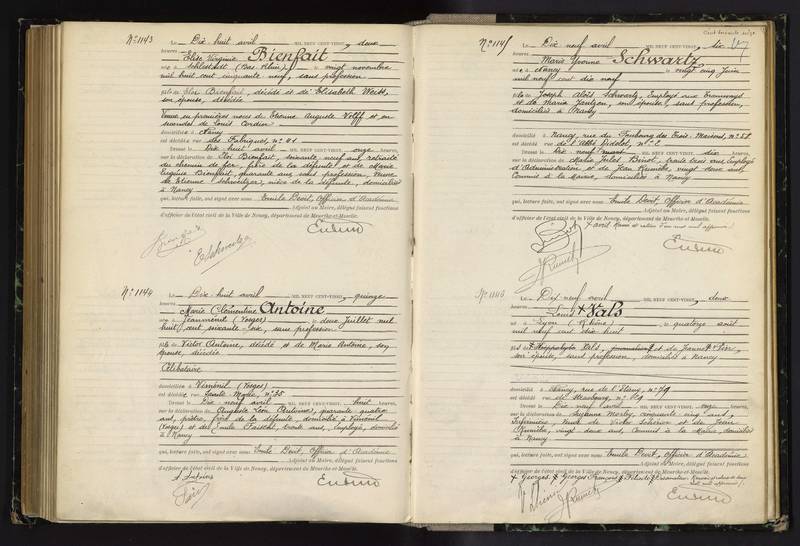 N° 1143
Le Dix huit avril MIL NEUF CENT-VINGT, deux
heures
Elise Virginie Bienfait
née à Schlestadt (Bas Rhin), le vingt novembre
mil huit cent cinquante neuf, sans profession
fille de Eloi Bienfait, décédé et de Elisabeth
son épouse, décédée
Veuve en premières noces de Etienne Auguste Wolff et en
secondes de Louis Cordier
domiciliée à Nancy
est décédée rue des Fabriques, n° 41
Dressé le Dix huit avril onze heures,
sur la déclaration de Eloi Bienfait, soixante neuf ans, retraité
du chemin de fer, frère de la défunte et de Marie
Virginie Bienfait, quarante ans, sans profession, veuve
de Etienne Schweitzer, nièce de la défunte, domiciliés
à Nancy
qui, lecture faite, ont signé avec nous Emile Devit, Officier d'Académie
Adjoint au Maire, délégué faisant fonctions
d'officier de l'état civil de la Ville de Nancy, département de Meurthe-et-Moselle.
E Schweitzer
N° 1144
Le Dix huit avril MIL NEUF CENT-VINGT, quinze
heures
Marie Clémentine Antoine
née à Jeanménil (Vosges), le deux Juillet mil
huit cent soixante six, sans profession
fille de Victor Antoine, décédé et de Marie Antoine, son
épouse, décédée
Célibataire
domiciliée à Viménil (Vosges)
est décédée rue Sainte Marie, n° 35
Dressé le Dix neuf avril huit heures,
sur la déclaration de Auguste Léon Antoine, quarante quatre
ans, prêtre, frère de la défunte, domicilié à Viménil
(Vosges) et de Emile Faischi, trente ans, employé, domicilié
à Nancy
qui, lecture faite, ont signé avec nous Emile Devit, Officier d'Académie
Adjoint au Maire, délégué faisant fonctions
d'officier de l'état civil de la Ville de Nancy, département de Meurthe-et-Moselle.
A Antoine
N° 1145
Le Dix neuf avril MIL NEUF CENT-VINGT, six
heures
Marie Yvonne Schwartz
née à Nancy, le vingt cinq Juin
mil neuf cent dix neuf
fille de Joseph Aloïs Schwartz, Employé aux Tramways
et de Maria Jantzen, son épouse, sans profession,
domiciliés à Nancy
domiciliée à Nancy, rue du Faubourg des Trois Maisons, n° 58
est décédée rue de l'Abbé Didelot, n° 2
Dressé le Dix neuf dix heures,
sur la déclaration de Marie Jules Bénot, trente trois ans, employé
d'Administration et de Jean Rumitz, vingt deux ans,
Commis à la Mairie, domiciliés à Nancy
qui, lecture faite, ont signé avec nous Emile Devit, Officier d'Académie
Adjoint au Maire, délégué faisant fonctions
d'officier de l'état civil de la Ville de Nancy, département de Meurthe-et-Moselle.
N° 1146
Le Dix neuf avril MIL NEUF CENT-VINGT, deux
heures
Louis Vals
né à Lyon (Rhône), le quatorze août
mil neuf cent dix huit
fils de Hippolyte Vals, et de Jeanne
son épouse, sans profession, domicilié à Nancy
domicilié à Nancy, rue de l'Etang, n° 79
est décédé rue de Strasbourg, n°
Dressé le Dix neuf avril onze heures,
sur la déclaration de Suzanne Morley, cinquante cinq ans,
Infirmière, veuve de Victor et de Jean
Rumitz, vingt deux ans, Commis à la Mairie, domiciliés
à Nancy
qui, lecture faite, ont signé avec nous Emile Devit, Officier d'Académie
Adjoint au Maire, délégué faisant fonctions
d'officier de l'état civil de la Ville de Nancy, département de Meurthe-et-Moselle.